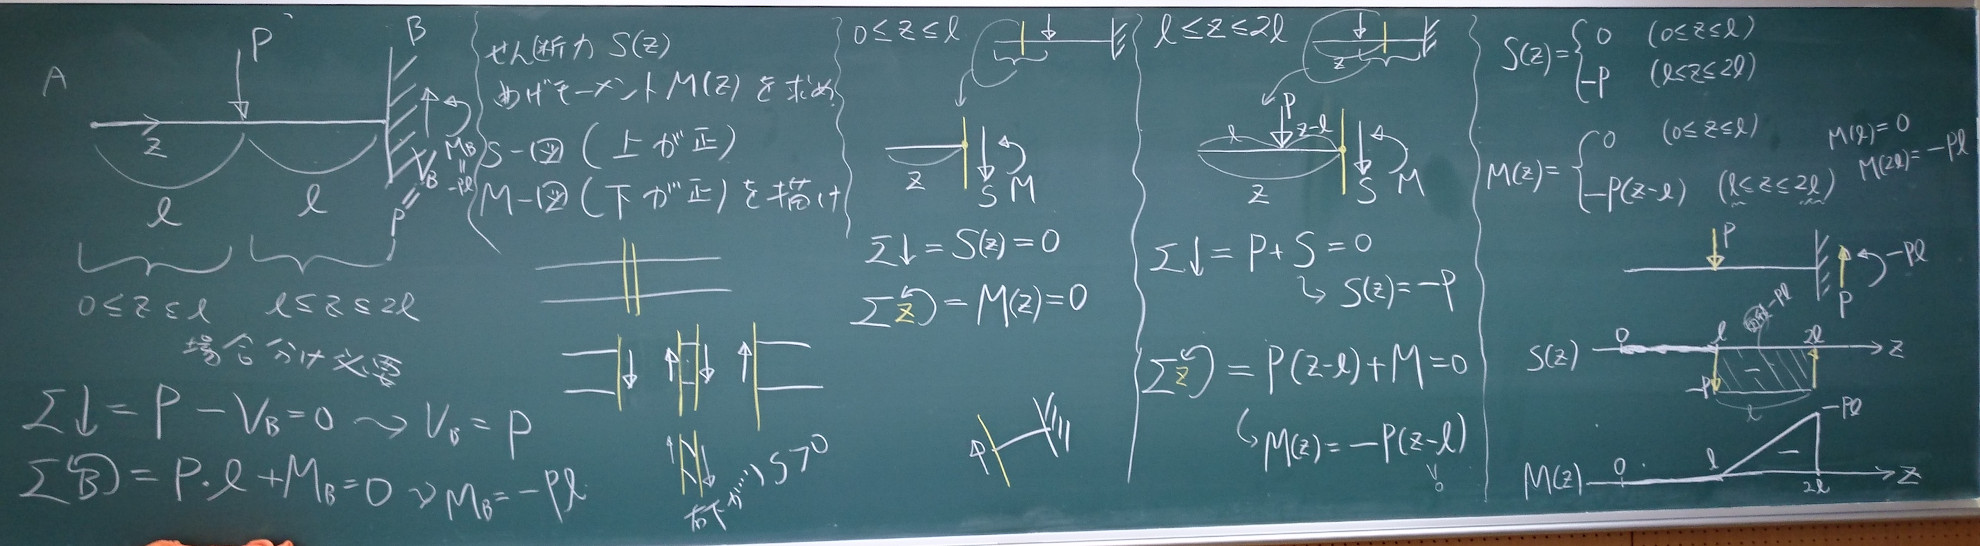 A
P
B
z
l
l
V_B
M_B
=
-Pl
=
P
0≤z≤l
l≤z≤2l
場合分け必要
Σ↓=P-V_B=0 → V_B=P
ΣB=P・l+M_B=0 → M_B=-Pl
せん断力 S(z)
曲げモーメントM(z)を求め
S-図(上が正)
M-図(下が正)を描け
右下がり S>0
0≤z≤l
z
S
M
Σ↓=S(z)=0
Σz=M(z)=0
l≤z≤2l
z
P
l
z-l
z
S
M
Σ↓=P+S=0
↳ S(z)=-P
Σz=P(z-l)+M=0
↳ M(z)=-P(z-l)
S(z)={
0 (0≤z≤l)
-P (l≤z≤2l)
M(z)={
0 (0≤z≤l)
-P(z-l) (l≤z≤2l)
M(l)=0
M(2l)=-Pl
P
-Pl
P
-Pl
S(z)
0
l
2l
z
-P
-
l
-Pl
M(z)
0
l
-
2l
z